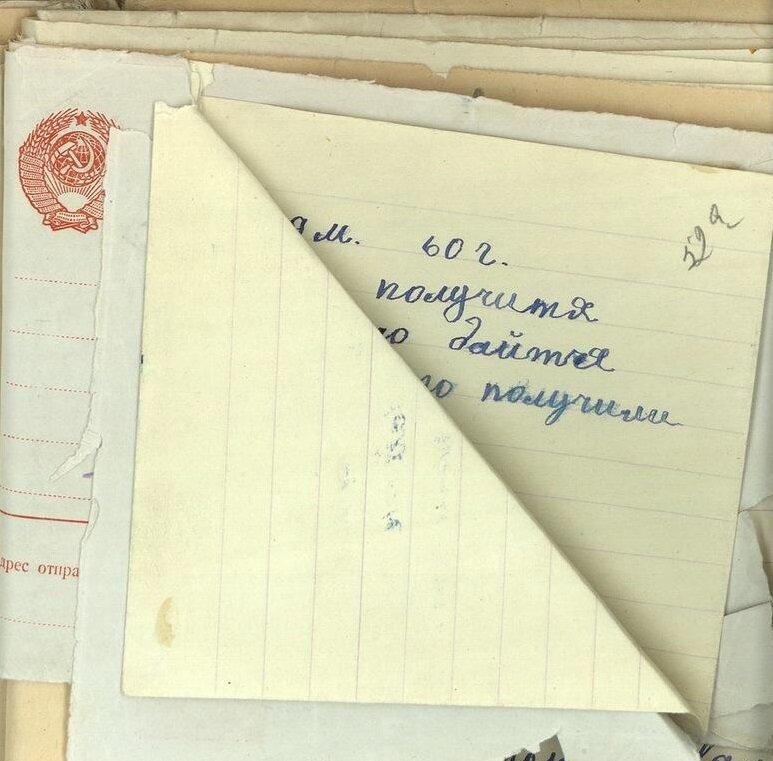 ям. 60 г.
получитя
го дайтчя
го получили
дрес отпра